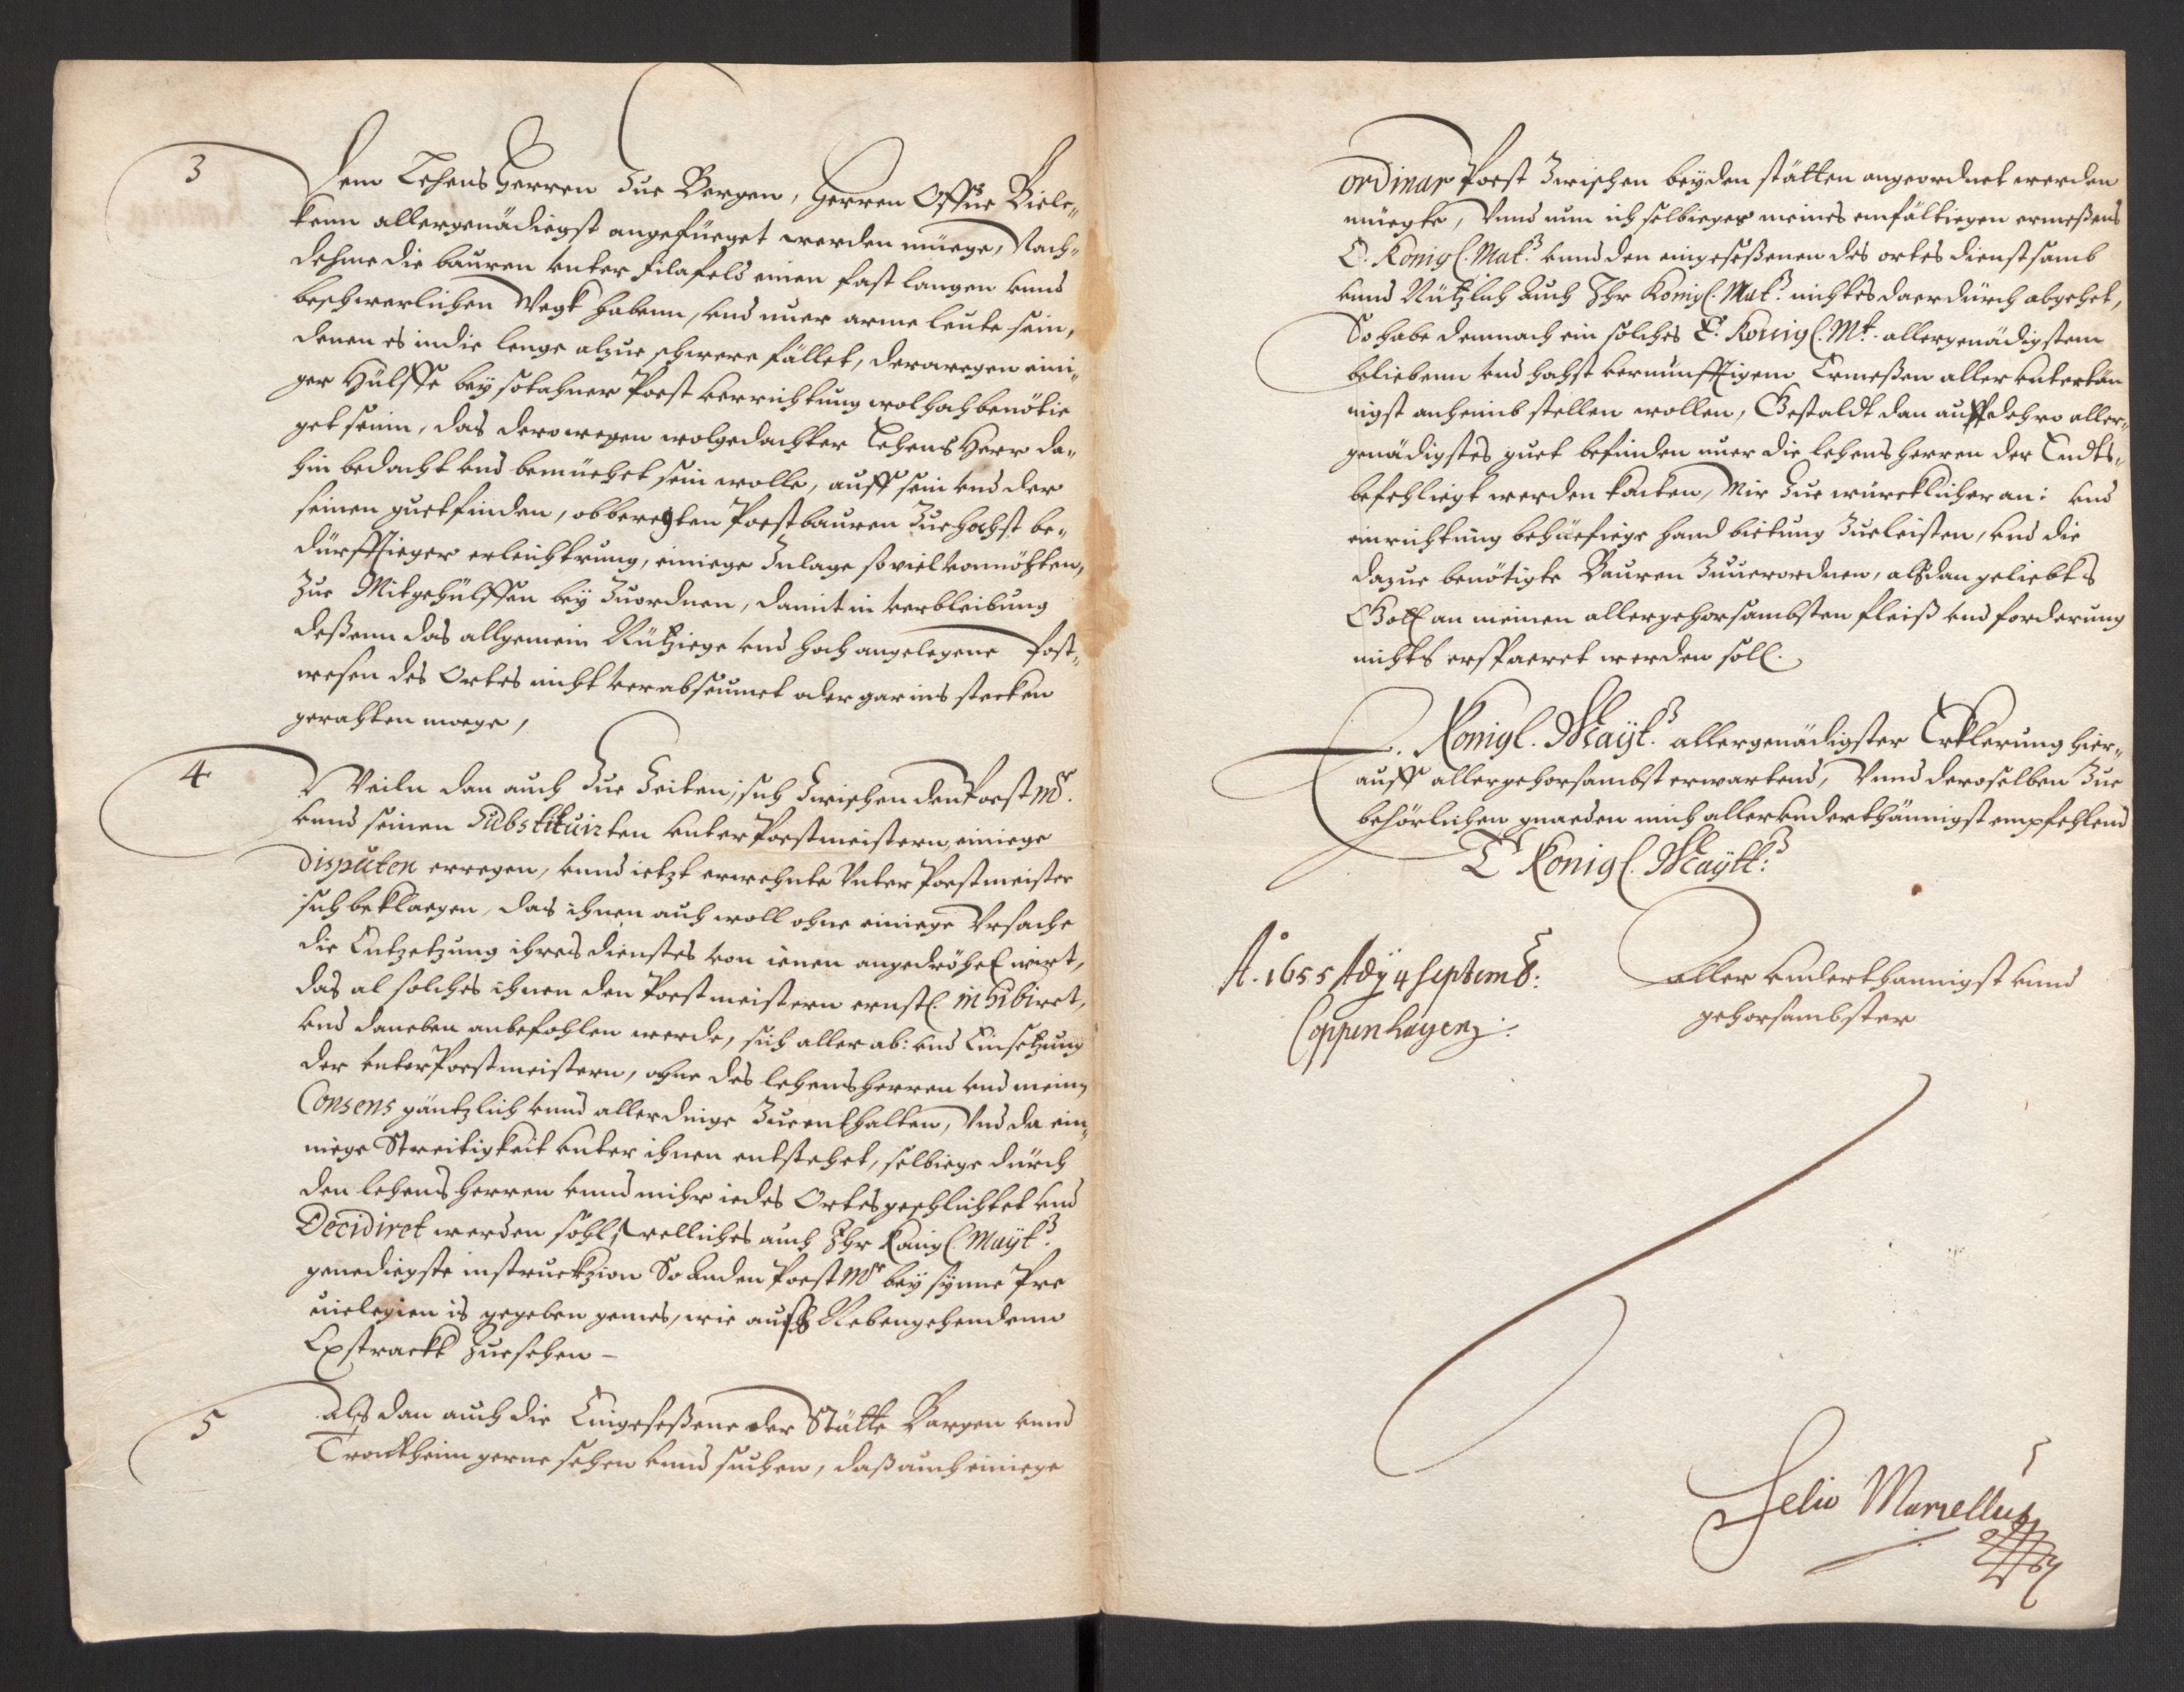 3
Dem Lehens Herren Zue Bergen, Herren Offue Biele„
kenn allergenädiegst angefüeget werden müege, Nach„
dehme die bauren unter Filafels einen fast langen unnd
beschwerlichen Wegk habenn, und nuer arme leute sein,
denen es in die lenge alzue schwere fället, derowegen eini„
ger Hülffe bey sotahner Poest verrichtung wol hoch benötie
get seinn, das derowegen wolgedachter Lehens Herr da„
hin bedacht und bemüehet sein wolle, auff sein und der
seinen guetfinden, obberegten Poestbauren Zue hochst be„
dürfftieger erleichtrung, einiege Zulage so viel vonnöhten,
Zue Mitgehülffen bey Zuordnen, damit in verbleibung
deßenn das allgemein Nützliege und hoch angelegene Post„
wesen des Ortes nicht verabseumet oder gar ins stecken
gerahten moege,
4
Weiln dan auch Zue Zeiten, sich Zwischen den Poest Mr.
unnd seinen Substituirten unter Poestmeistern, einiege
disputen erregen, unnd ietzt erwehnte Unter Poestmeister
sich beklaegen, das ihnen auch woll ohne einiege Ursache
die Entzetzung ihres dienstes von ienen angedröhet wirt,
das al solches ihnen den Poestmeistern ernstl. inhibiret,
und daneben anbefohlen werde, sich aller ab: und Einsetzung
der unter Poestmeistern, ohne des lehensherren und meinn
Consens gäntzlich unnd allerdinge Zue enthalten, Und da ein„
niege Streitigkeit unter ihnen entstehet, selbiege durch
den lehens herren unnd mihr iedes Ortes geschlichtet und
Decidiret werden sohl, welliches auch Ihr Königl. Mayt.
genediegste instrucktzion So an den Poest Mr bey synne Pre
vielegien is gegeben gemes, wie auss Nebengehendenn
Exstrackt Zuesehen –
5
Alß dan auch die Eingeseßene der Stätte Bargen unnd
Trontheim gerne sehen unnd suchen, daß auch einiege
ordinar Poest Zwischen beyden stätten angeordnet werden
müegte, Unnd nun ich selbieges meines einfältiegen ermeßens
E. Königl. Mat. unnd den eingeseßenen des ortes dienstsamb
unnd Nützlich auch Ihr Königl. Mat. nichtes daerdürch abgehet,
So habe demnach ein solches E. Königl. Mt. allergenädigstem
beliebenn und hohst vernunfftigem Ermeßen aller untertän
nigst anheimb stellen wollen, Gestaldt dan auff dehro aller„
genädigstes guet befinden nuer die lehens herren der Endts„
befehliegt werden können, Mir Zue würcklicher an: und
einrichtung behüefiege hand bietung Zue leisten, und die
dazue benötigte Bauren Zuuerordnen, alßdan geliebts
Gott an meinen allergehorsambsten fleiß und forderung
nichts erspaeret werden soll.
E. Königl. Mayt. allergenädigster Erklerung hier„
auff allergehorsambst erwartend, Unnd deroselben Zue
behörlichen gnaeden mich allerunderthännigst empfehlend
E Königl. Maytt:
Aller underthannigst unnd
gehorsambster
Ao. 1655 Ady 4 Septemb:
Coppenhagen:
Selio Marsellus